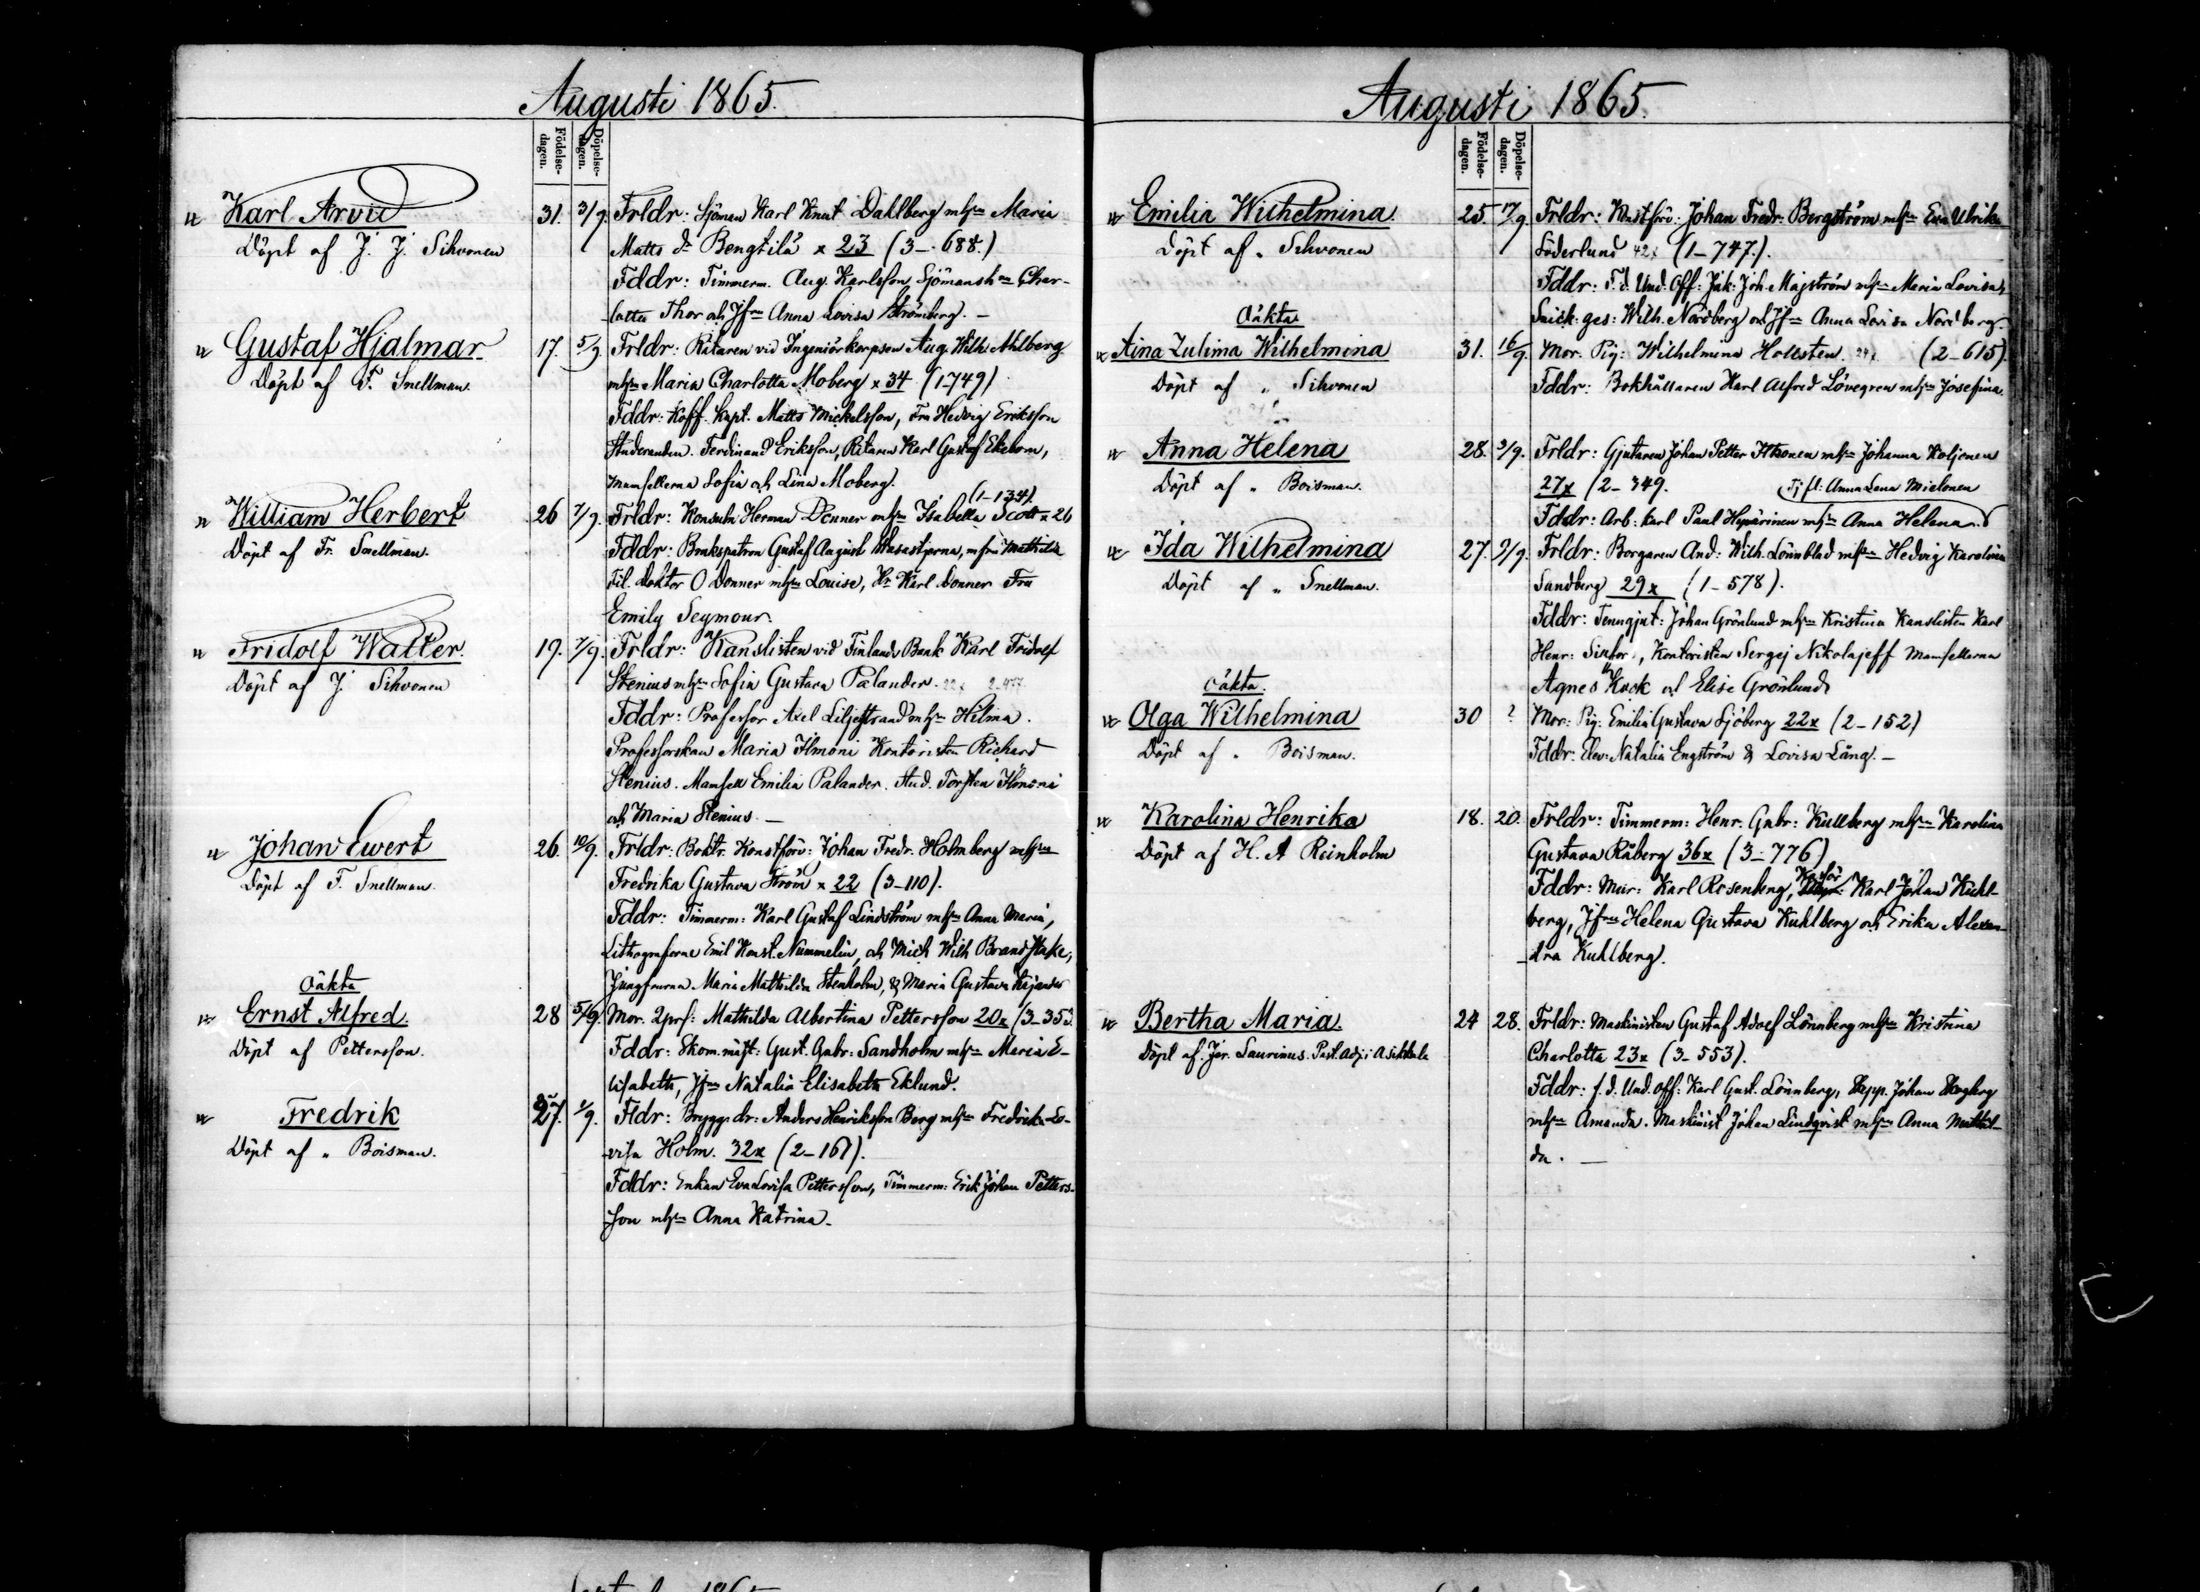 Augusti 1865.
Födelse-
dagen.
Döpelse-
dagen.
Karl Arvid
Döpt af J. J. Sihvonen
31. 3/9.
Frldr: Sjöman Karl Knut Dahlberg mhn Maria
Matts dr Bengtilä x 23 (3-688.)
Fddr: Timmerm. Aug. Karlsson Sjömansh Char-
lotta Thor och Jfrn Anna Lovisa Strömberg. —
Gustaf Hjalmar
Döpt af F. Snellman.
17. 5/9
Frldr: Ritaren vid Ingeniörkorpsen Aug. Wilh. Ahlberg
mhn Maria Charlotta Moberg x 34 (1-749)
Fddr: Koff. Kapt. Matts Mickelsson, Fru Hedvig Eriksson
Studeranden Ferdinand Eriksson, Ritaren Karl Gustaf Ekebom,
Mamsellerna Sofia och Lina Moberg.
William Herbert
Döpt af Fr. Snellman.
26 7/9.
(1-134)
Frldr: Konsuln Herman Donner mhn Isabella Scott x 26
Fddr: Brukspatron Gustaf August Wasastjerna, mfru Mathilda
Fil. Doktor O Donner mhn Louise, Hr Karl Donner Fru
Emily Seymour.
Fridolf Walter.
Döpt af J. Sihvonen
19. 7/9.
Frldr: Kanslisten vid Finlands Bank Karl Fridolf
Stenius mhn Sofia Gustava Palander. 22x 2-477
Fddr: Professor Axel Liljestrand mhn Hilma.
Professorskan Maria Ilmoni Kontoristen Richard
Stenius. Mamsell Emilia Palander. Stud. Torsten Ilmoni
och Maria Stenius. —
Johan Ewert
Döpt af F. Snellman.
26. 10/9.
Frldr: Boktr. Konstförv: Johan Fredr. Holmberg mhn
Fredrika Gustava Ström x 22 (3-110).
Fddr: Timmerm: Karl Gustaf Lindström mhn Anna Maria,
Lithograferne Emil Konst. Nummelin, och Mich Wilh Brandstake,
Jungfrurna Maria Mathilda Stenholm, & Maria Gustava
Oäkta
Ernst Alfred.
Döpt af Pettersson.
28 5/9.
Mor. Mathilda Albertina Pettersson 20x (3-353
Fddr: Skom. mäst: Gust. Gabr: Sandholm mhn Maria E-
lisabeth, Jfrn Natalia Elisabeth Eklund.
Fredrik
Döpt af „ Boisman.
27. 1/9.
Fldr: Brygg. dr: Anders Henriksson Berg mhn Fredrika Lo-
visa Holm. 32x (2-167).
Fddr: Enkan Eva Lovisa Pettersson, Timmerm: Erik Johan Petters-
son mhn Anna Katrina.
Augusti 1865.
Födelse-
dagen.
Döpelse-
dagen.
Emilia Wilhelmina.
Döpt af „ Sihvonen
25 17/9.
Frldr: Konstförv: Johan Fredr: Bergström mhn Eva Ulrika
Söderlund 42x (1-747.).
Fddr: F. d. Und. Off: Jak: Joh. Majström mhn Maria Lovisa,
Snick. ges: Wilh. Nordberg och Jfrn Anna Lovisa Nordberg.
Oäkta
Aina Zulima Wilhelmina
Döpt af „ Sihvonen
31. 16/9.
Mor. Pig: Wilhelmina Hollsten. 24x (2-615)
Fddr: Bokhållaren Karl Alfred Lövegren mhn Josefina.
Anna Helena
Döpt af „ Boisman.
28. 3/9.
Frldr: Gjutaren Johan Petter Ittonen mhn Johanna Koljonen
27x (2-349. Tj fl: Anna Lena Mielonen
Fddr: Arb: Karl Paul mhn Anna Helena.
Ida Wilhelmina
Döpt af „ Snellman.
27. 9/9.
Frldr: Borgaren And: Wilh. Lönnblad mhn Hedvig Karolina
Sandberg 29x (1-578).
Fddr: Tenngjut: Johan Grönlund mhn Kristina Kanslisten Karl
Henr: , Kontoristen Sergej Nikolajeff Mamsellerna
Agnes Kock och Elise Grönlund
Oäkta.
Olga Wilhelmina
Döpt af „ Boisman.
30 ?
Mor: Pig: Emilia Gustava Sjöberg 22x (2-152)
Fddr: Elev: Natalia Engström & Lovisa Lång. —
Karolina Henrika
Döpt af H. A Reinholm
18. 20.
Frldr: Timmerm: Henr. Gabr: Kullberg mhn Karolina
Gustava Råberg 36x (3-776)
Fddr: Mur: Karl Rosenberg, Karl Johan Kuhl-
berg, Jfrn Helena Gustava Kuhlberg och Erika Alexan-
dra Kuhlberg.
Bertha Maria.
Döpt af. Jar. Laurinus. Past. Adj: i Asikkala
24 28.
Frldr: Maskinisten Gustaf Adolf Lönnberg mhn Kristina
Charlotta 23x (3-553).
Fddr: f. d. Und. off: Karl Gust. Lönnberg, Skepp. Johan Skogberg
mhn Amanda. Maskinist Johan Lindqvist mhn Anna Mathil-
da. —
1865